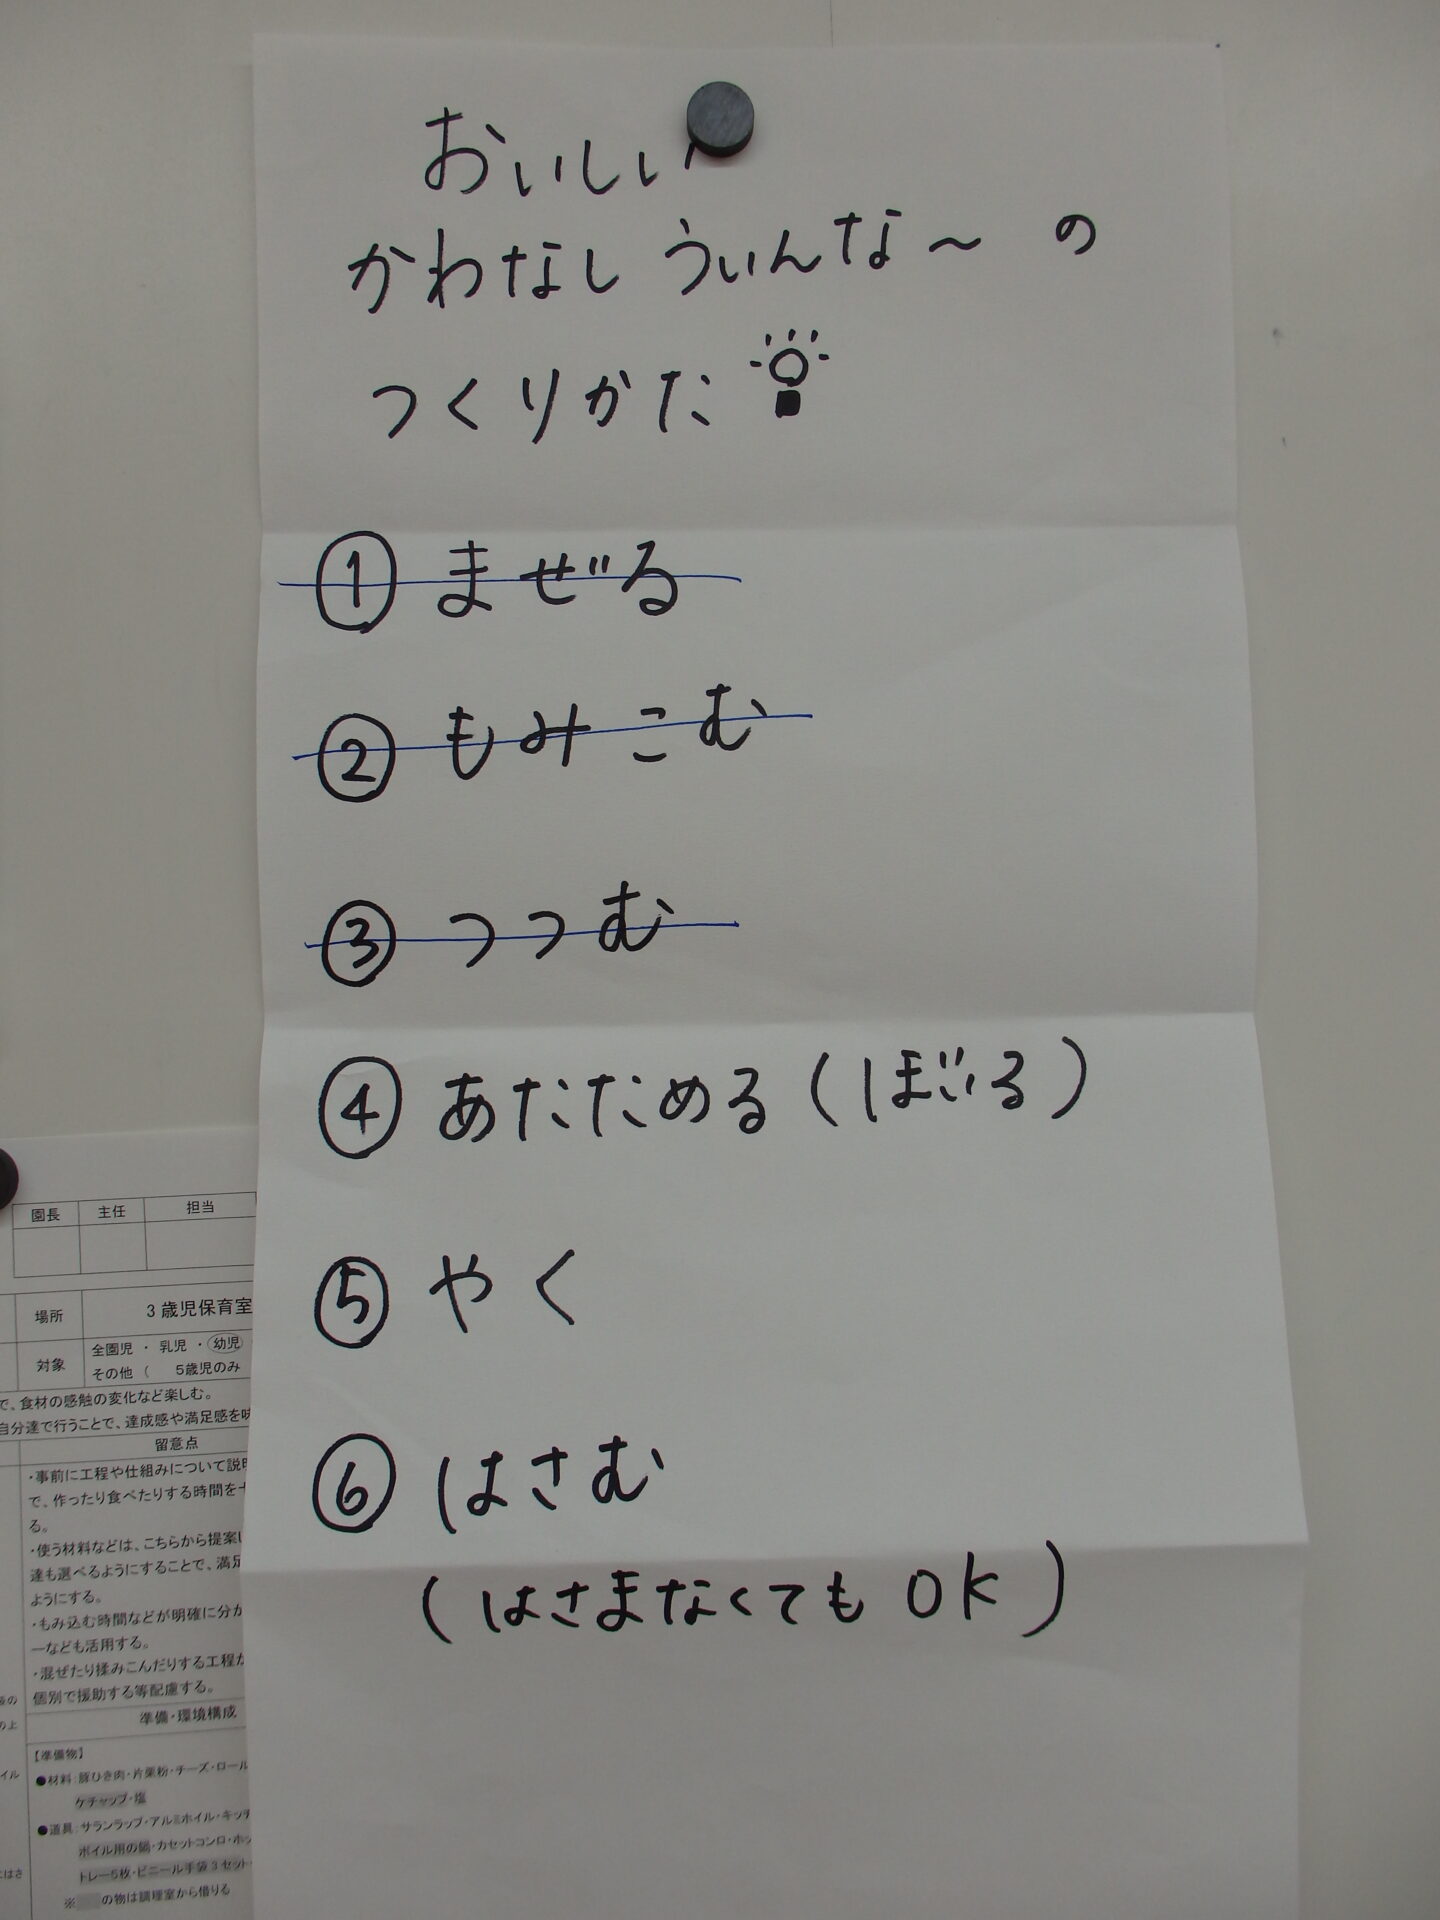 おいしい
かわなし ういんな〜 の
つくりかた
① まぜる
② もみこむ
③ つつむ
④ あたためる(ぼいる)
⑤ やく
⑥ はさむ
(はさまなくても OK)
園長 主任 担当
場所 3歳児保育室
対象 全園児 ・ 乳児 ・ 幼児
その他 ( 5歳児のみ
で、食材の感触の変化など楽しむ。
自分達で行うことで、達成感や満足感を味
留意点
・事前に工程や仕組みについて説明
で、作ったり食べたりする時間を十
る。
・使う材料などは、こちらから提案し
達も選べるようにすることで、満足
ようにする。
・もみ込む時間などが明確に分か
ーなども活用する。
・混ぜたり揉みこんだりする工程が
個別で援助する等配慮する。
準備・環境構成
【準備物】
●材料:豚ひき肉・片栗粉・チーズ・ロール
ケチャップ・塩
●道具:サランラップ・アルミホイル・キッチ
ボイル用の鍋・カセットコンロ・ホッ
トレー5枚・ビニール手袋3セット
※ の物は調理室から借りる